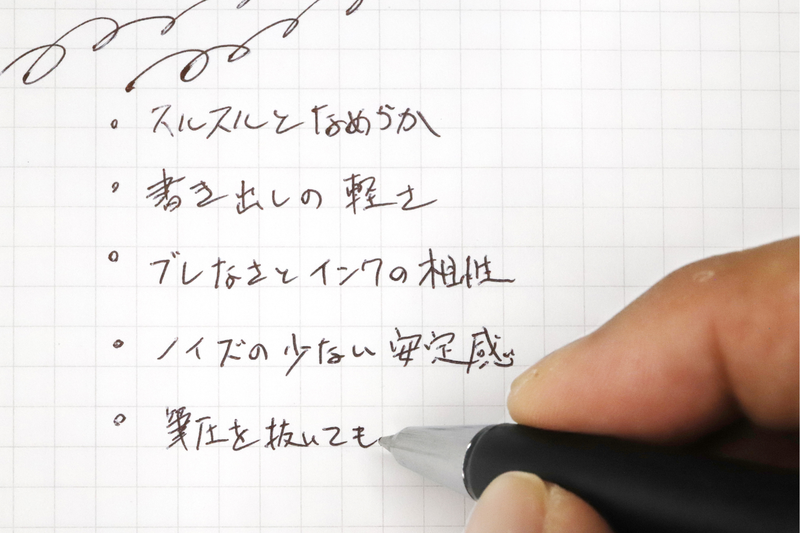 。スルスルとなめらか
。書き出しの軽さ
。ブレなさとインクの相性
。ノイズの少ない安定感
。筆圧を抜いても